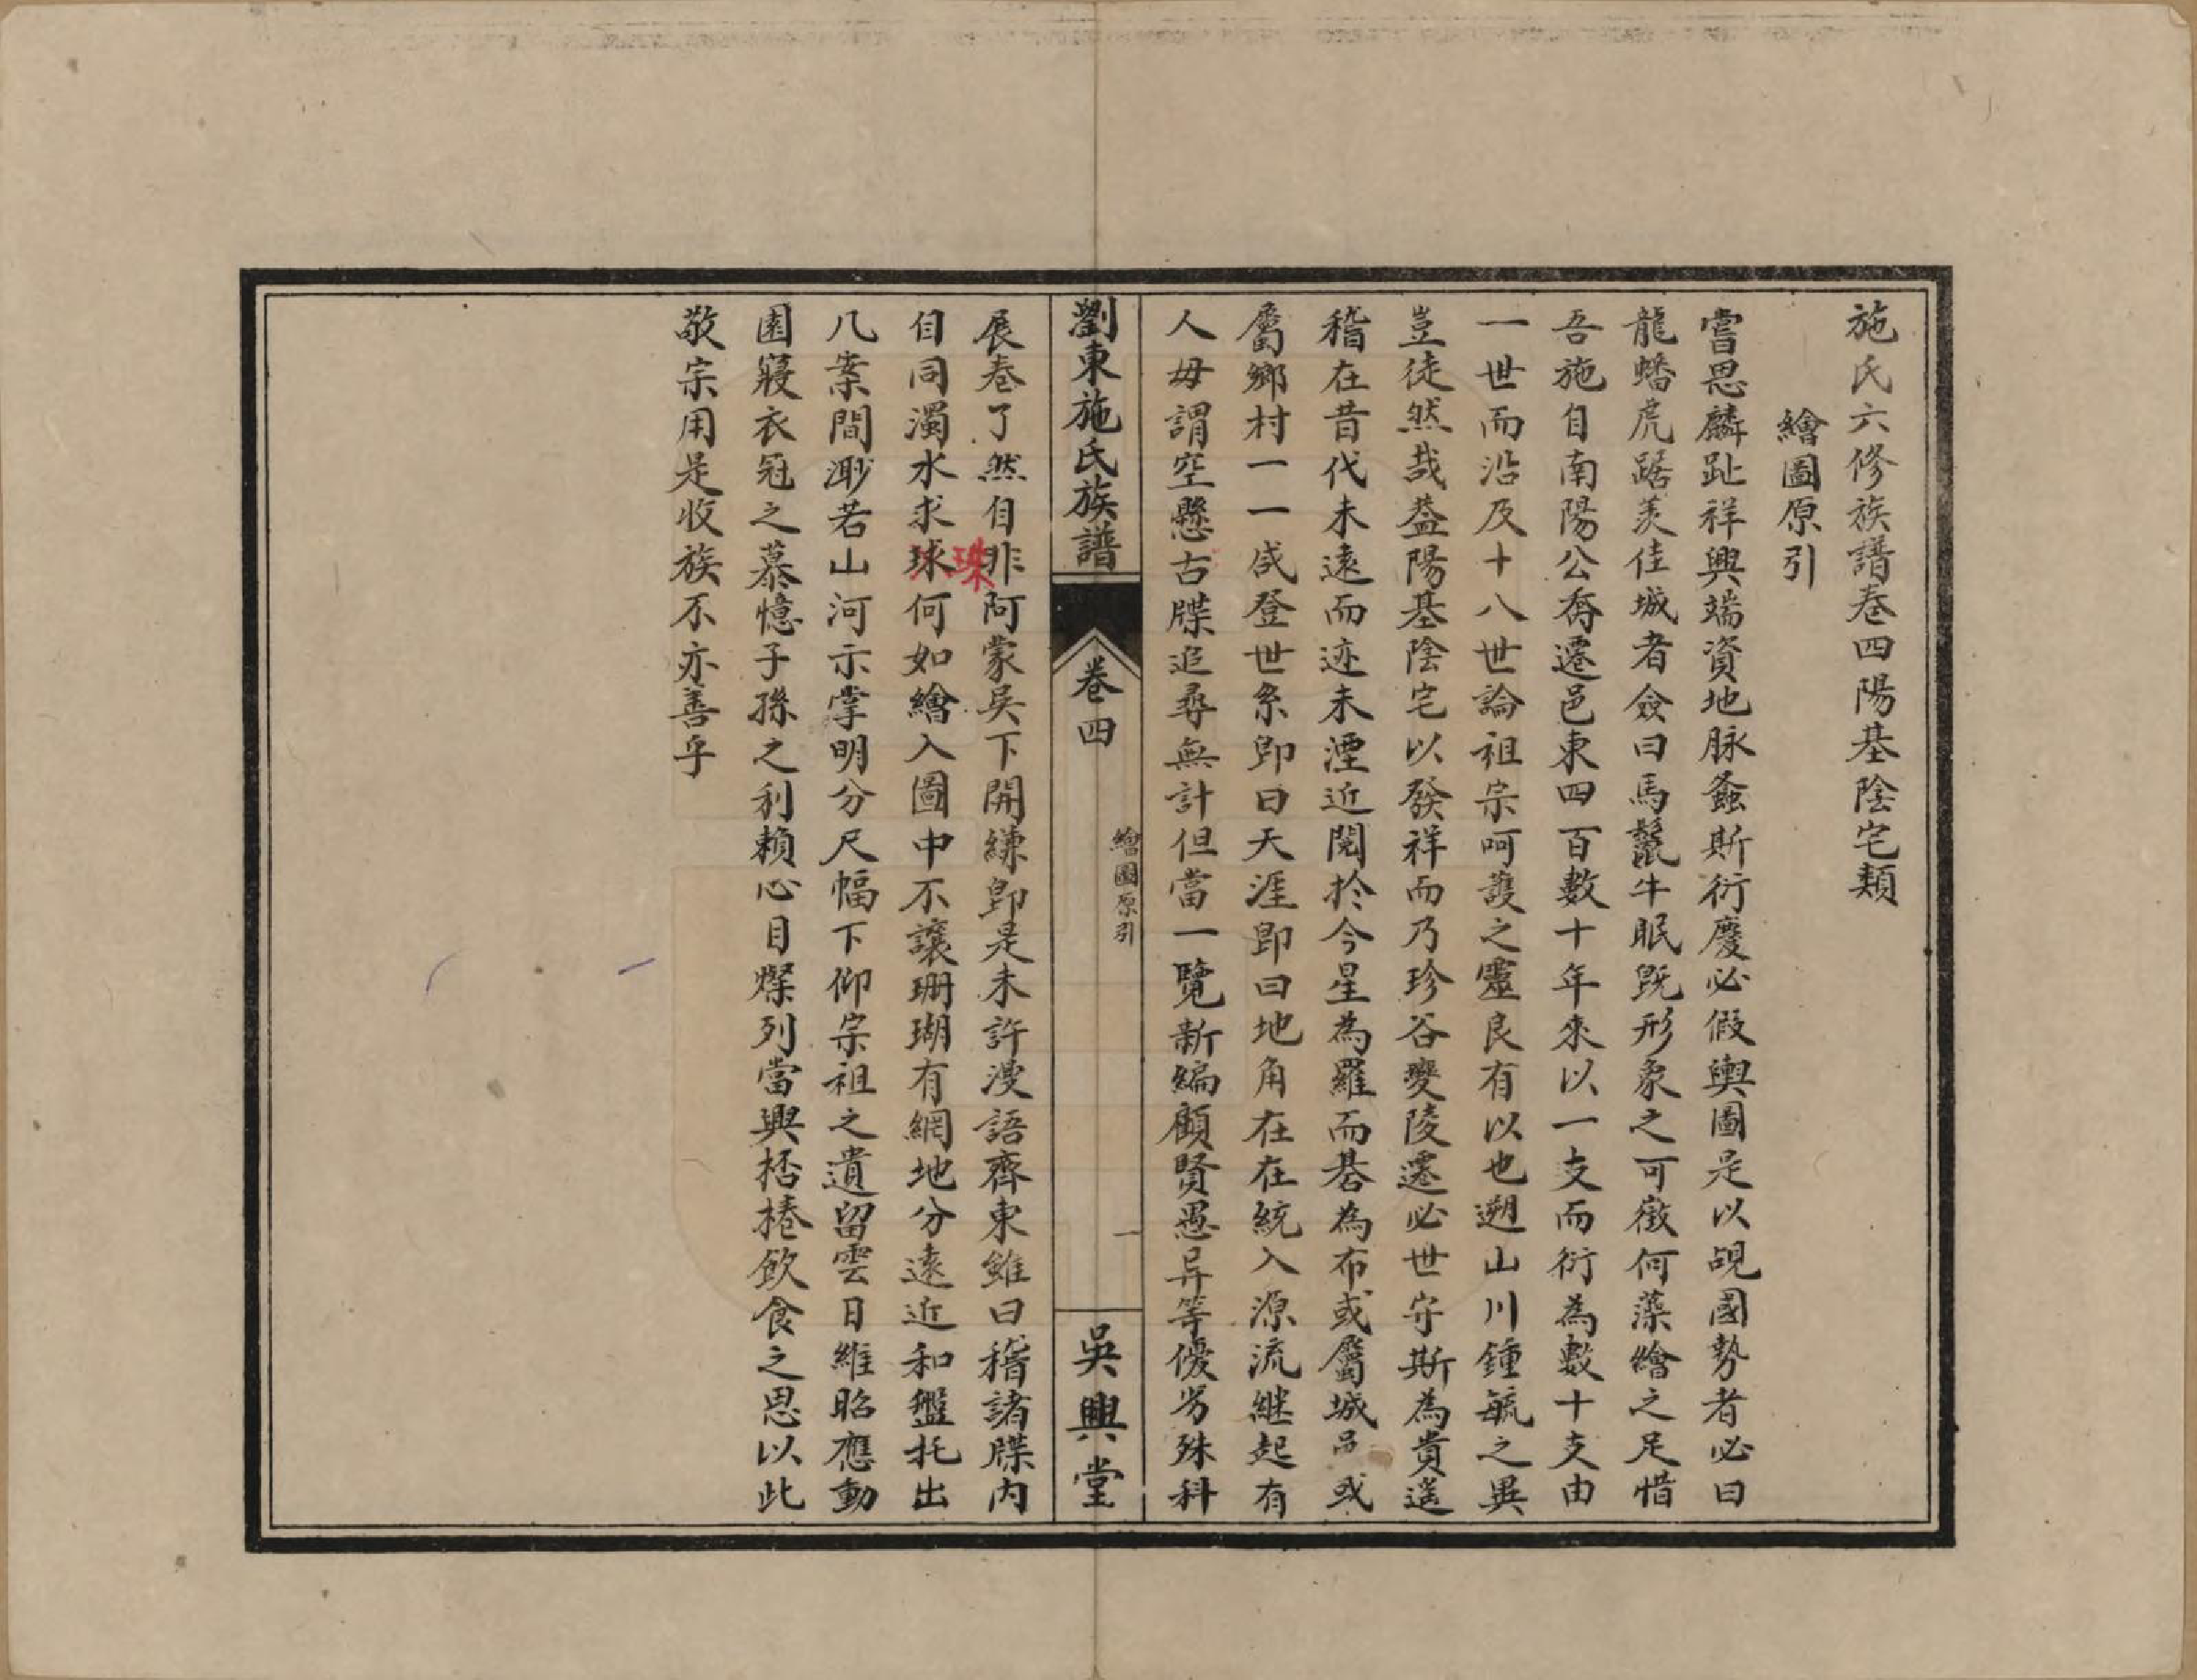 施氏六修族譜卷四陽基陰宅類
繪圖原引
嘗思麟趾祥興端資地脉螽斯衍慶必假輿圖是以覘國勢者必曰
龍蟠虎踞羡佳城者僉曰馬鬛牛眠既形象之可徵何藻繪之足惜
吾施自南陽公喬遷邑東四百數十年來以一支而衍為數十支由
一世而沿及十八世論祖宗呵護之靈良有以也遡山川鍾毓之異
豈徒然哉葢陽基陰宅以發祥而乃珍谷變陵遷必世守斯為貴遥
稽在昔代未遠而迹未湮近閱於今星為羅而碁為布或屬城邑或
屬鄉村一一咸登世系即曰天涯即曰地角在在統入源流継起有
人毋謂空懸古牒追尋無計但當一覽新編顧賢愚异等優劣殊科
劉東施氏族譜
卷四
繪圖原引
一
吳興堂
展卷了然自非阿蒙吴下開縑即是未許漫語齊東雖曰稽諸牒内
目同濁水求球何如繪入圖中不讓珊瑚有網地分遠近和盤托出
珠
几案間渺若山河示掌明分尺幅下仰宗祖之遺留雲日維昭應動
園寢衣冠之慕憶子孫之利賴心目燦列當興桮棬飲食之思以此
敬宗用是收族不亦善乎